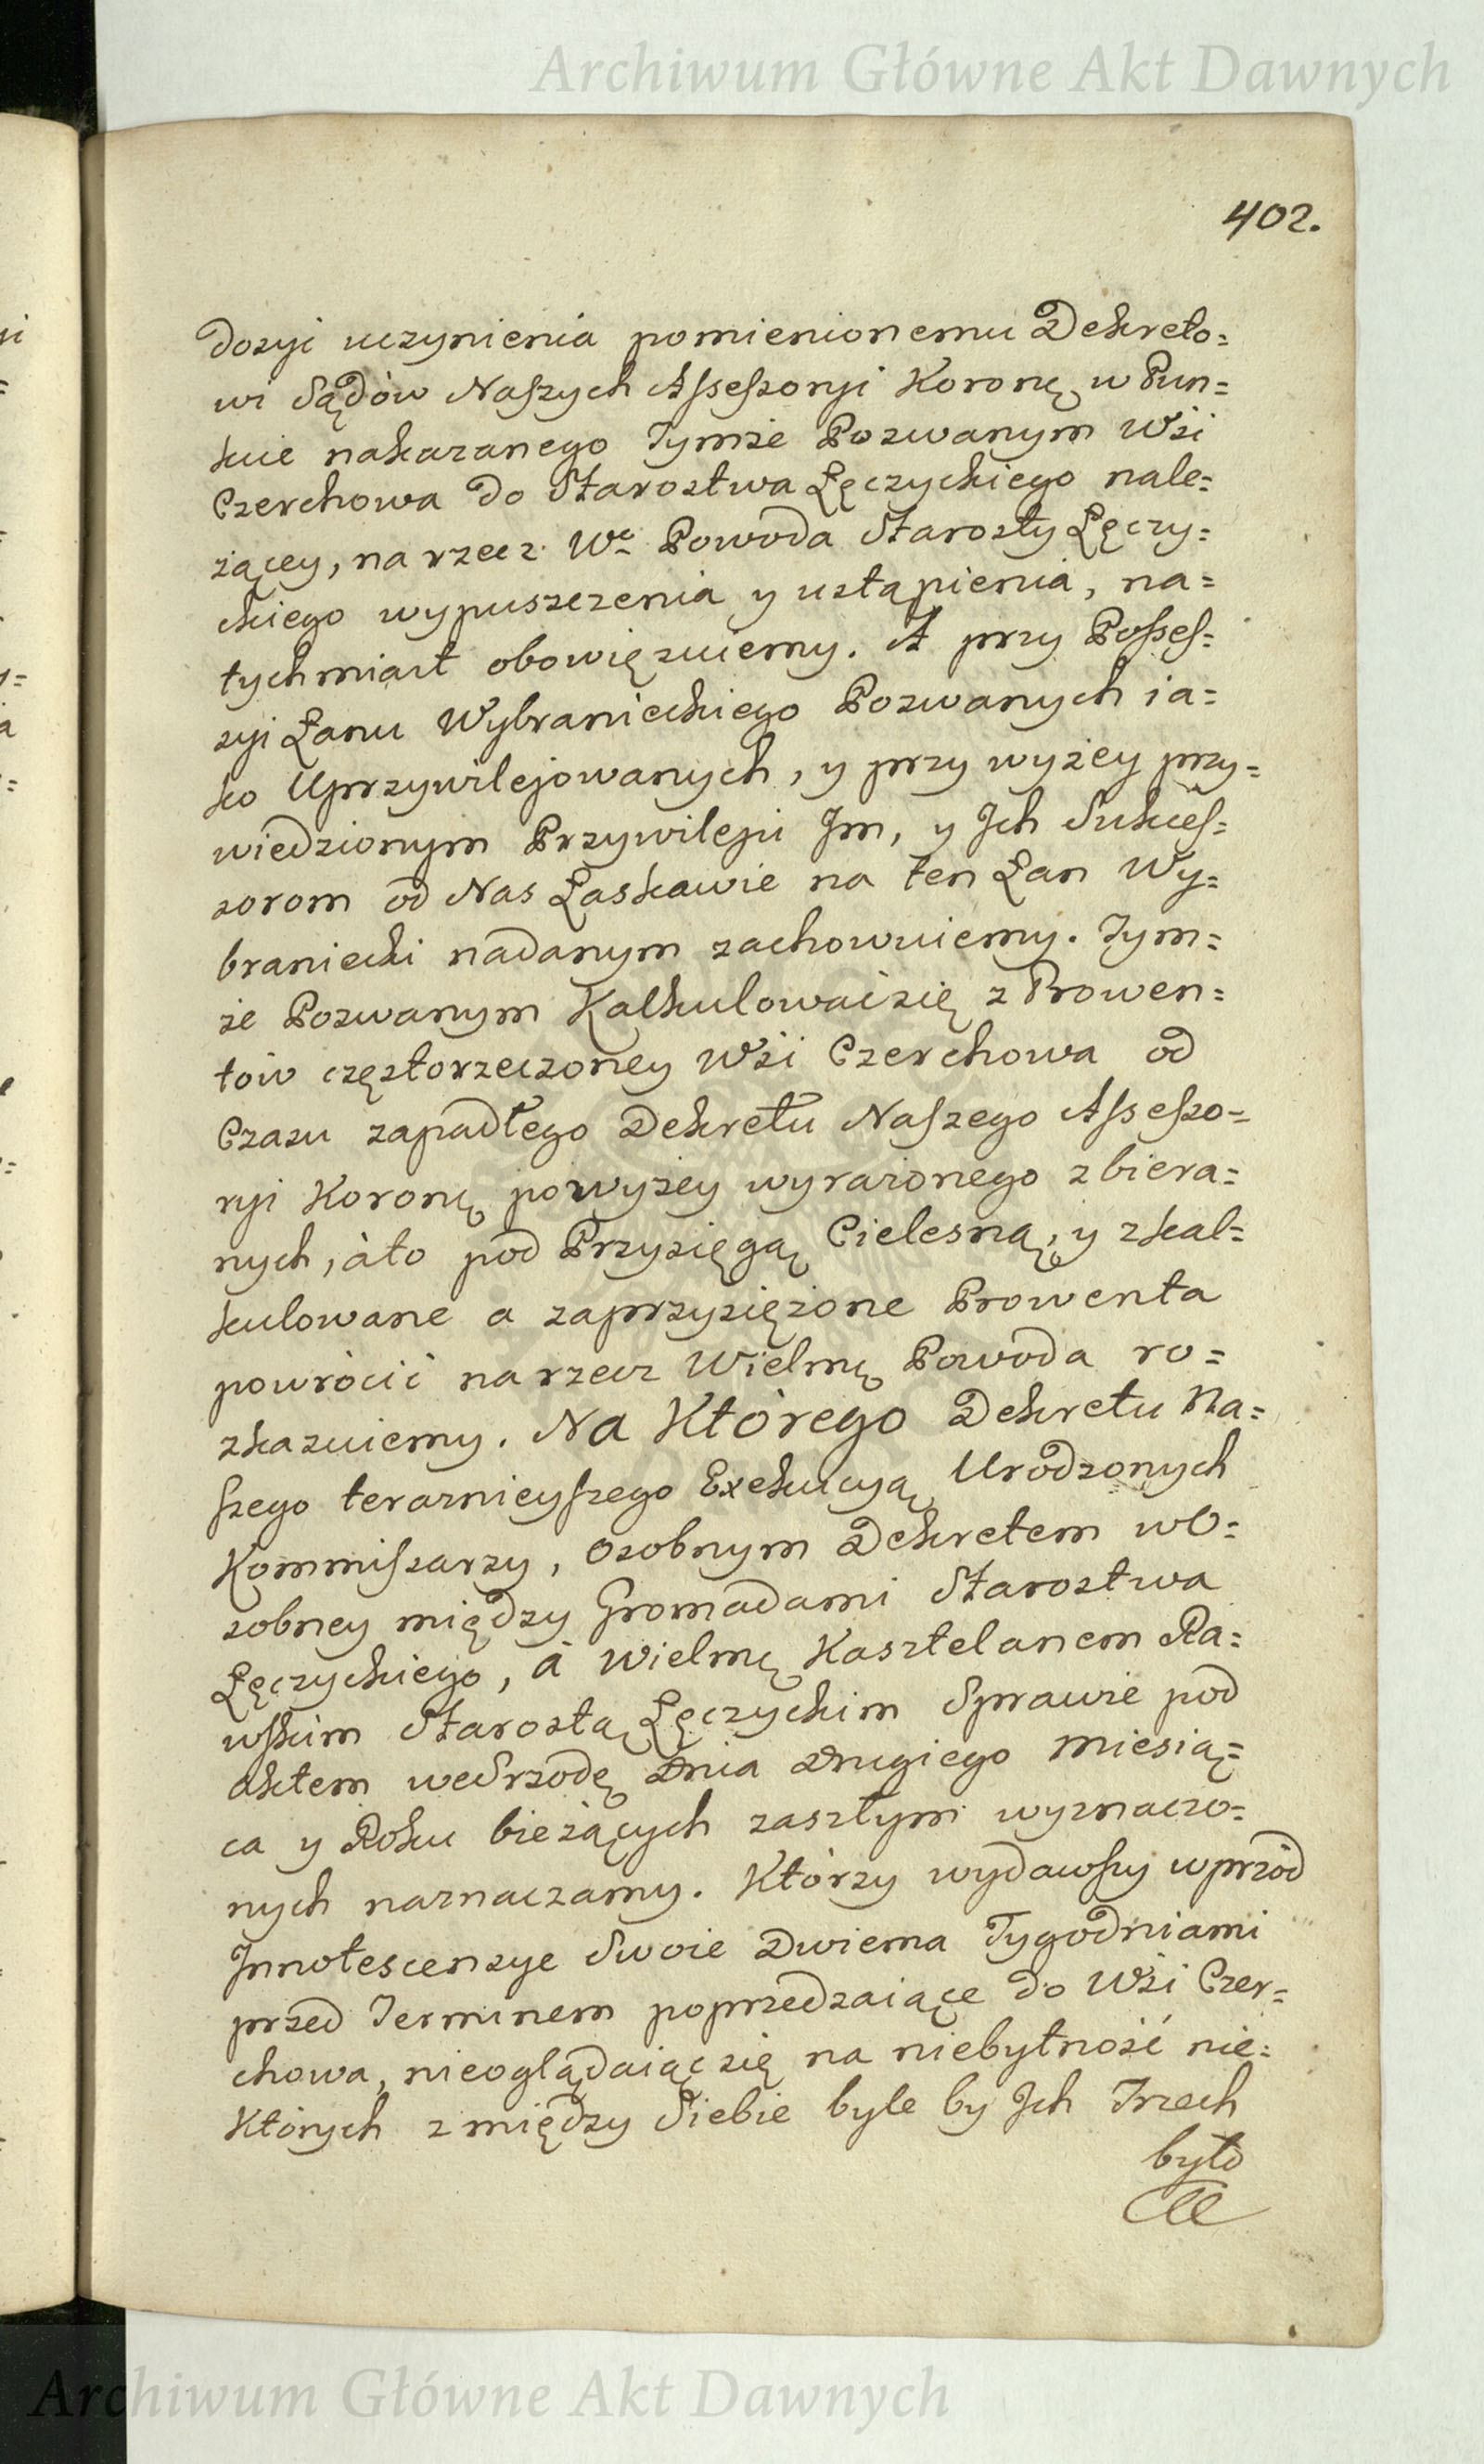 Archiwum Główne Akt Dawnych
402.
dosyć uczynienia pomienionemu Dekreto=
wi Sądów Naszych Assessoryi Koronę w Pun=
kcie nakazanego Tymże Pozwanym Wśi
Czerchowa do Starostwa Łęczyckiego nale=
żącey, na rzecz Wo Powoda Starosty Łęczy=
ckiego wypuszczenia y ustąpienia, na=
tychmiast obowięzuiemy. A przy Posses=
syi Łanu Wybranieckiego Pozwanych ia=
ko Uprzywilejowanych, y przy wyżey przy=
wiedzionym Przywileju Jm, y Jch Sukces=
sorom od Nas Łaskawie na ten Łan Wy=
braniecki nadanym zachowuiemy. Tym=
że Pozwanym Kalkulować się z Prowen=
tów częstorzeczoney Wśi Czerchowa od
Czasu zapadłego Dekretu Naszego Assesso=
ryi Koronę powyżey wyrażonego zbiera=
nych, à to pod Przysięgą Cielesną, y zkal=
kulowane a zaprzysiężone Prowenta
powrócić na rzecz Wielmę Powoda ro=
zkazuiemy. Na Którego Dekretu Na=
szego teraznieyszego Exekucyą Urodzonych
Kommissarzy, Osobnym Dekretem w O=
sobney między Gromadami Starostwa
Łęczyckiego, à Wielmę Kasztelanem Ra=
wskim Starostą Łęczyckim Sprawie pod
aktem we Srzodę Dnia Drugiego Miesią=
ca y Roku bieżących zaszłym wyznaczo=
nych naznaczamy. Którzy wydawszy wprzód
Innotescensye Swoie Dwiema Tygodniami
przed Terminem poprzedzaiące do Wśi Czer=
chowa, nieoglądaiąc się na niebytność nie=
Których z między Siebie byle by Jch Trzech
było
Archiwum Główne Akt Dawnych